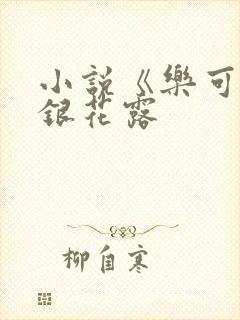 小說《樂可
銀花露
柳自寒